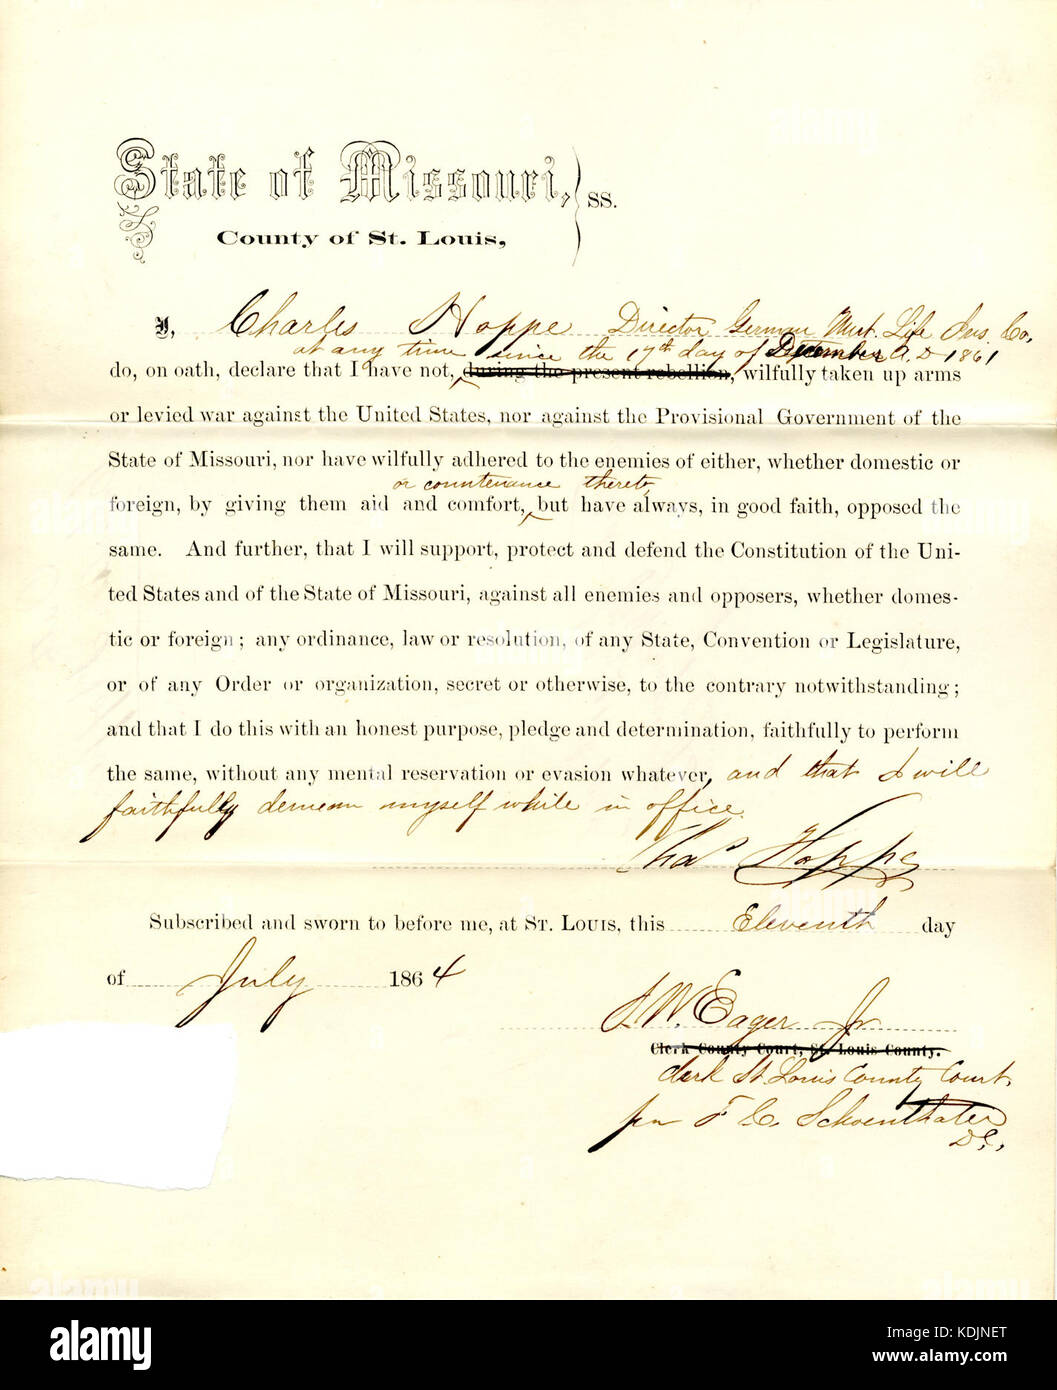 State of Missouri, } SS.
County of St. Louis,
I, Charles Hoppe Director German Mut. Life Ins. Co,
at any time since the 17th day of December A.D 1861
do, on oath, declare that I have not, during the present rebellion, wilfully taken up arms
or levied war against the United States, nor against the Provisional Government of the
State of Missouri, nor have wilfully adhered to the enemies of either, whether domestic or
or countenance thereto,
foreign, by giving them aid and comfort, but have always, in good faith, opposed the
same. And further, that I will support, protect and defend the Constitution of the Uni-
ted States and of the State of Missouri, against all enemies and opposers, whether domes-
tic or foreign; any ordinance, law or resolution, of any State, Convention or Legislature,
or of any Order or organization, secret or otherwise, to the contrary notwithstanding;
and that I do this with an honest purpose, pledge and determination, faithfully to perform
the same, without any mental reservation or evasion whatever, and that I will
faithfully demean myself while in office.
Chas Hoppe
Subscribed and sworn to before me, at St. Louis, this Eleventh day
of July 1864
W. Eager Jr
Clerk County Court, St. Louis County.
Clerk St. Louis County Court.
per F C. Schoenthaler
D.C.,
alamy
Image ID: KDJNET
www.alamy.com